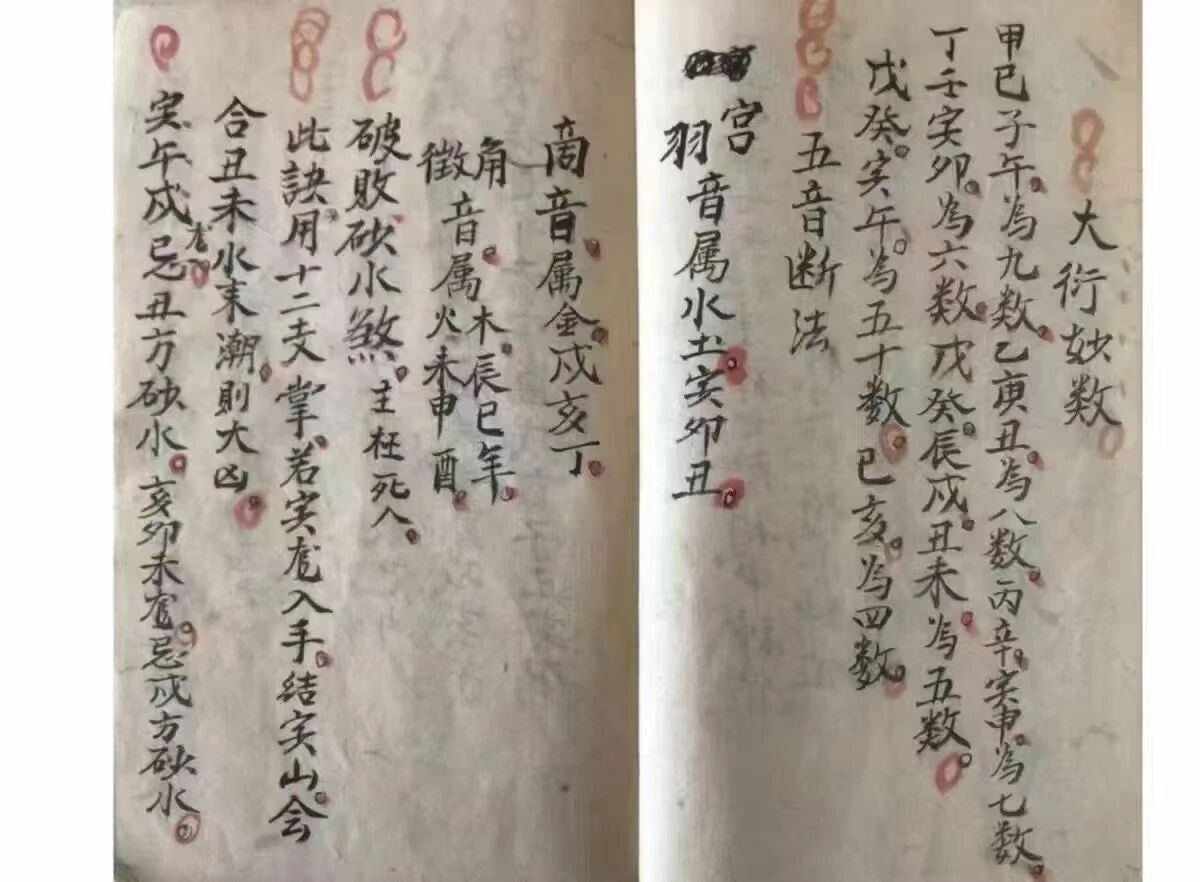 大衍妙数。
甲己子午。为九数。乙庚丑。为八数。丙辛。寅申。为七数。
丁壬寅卯。为六数。戊癸。辰戌。丑未。为五数。
戊癸。寅午。为五十数。巳亥。为四数。
五音断法
宫
羽音属水土。亥卯丑。
商音。属金。戌亥丁。
角
徵音。属木。辰巳年。
火未申酉。
破败砂水煞。主枉死人。
此诀用十二支掌。若寅龙入手。结寅山。会
合丑未水来潮。则大凶。
寅午戌龙。忌丑方砂水。亥卯未龙。忌戌方砂水。